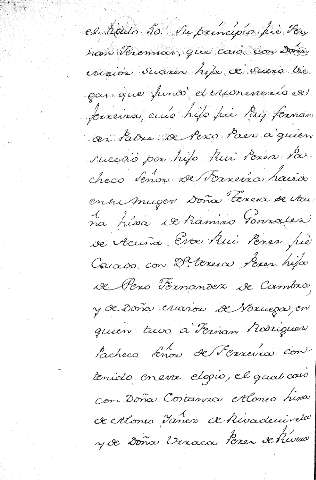 el título 50. Su principio fue Fer
nan Jeremias, que casó con Doña
Suarez hija de Suero Vie
gas que fundó el Monasterio de
Ferreira, cuio hijo fue Ruy Fernan
dez Padre de Pero Paez a quien
sucedió por hijo Rui Perez Pa
checo Señor de Ferreira havia
en su Muger Doña Teresa de
ña hixa de Ramiro Gonzalez
de Acuña. Este Rui Perez fue
Casado con Dª. teresa Perez hija
de Pero Fernandez de Cambra,
y de Doña de Noruega, en
quien tuvo a Fernan Rodriguez
Pacheco Señor de Ferreira con
tenido en este elogio, el qual casó
con Doña Costanza Alonso hixa
de Alonso Yañez de Rivadeneira
y de Doña Urraca Perez de Rivera